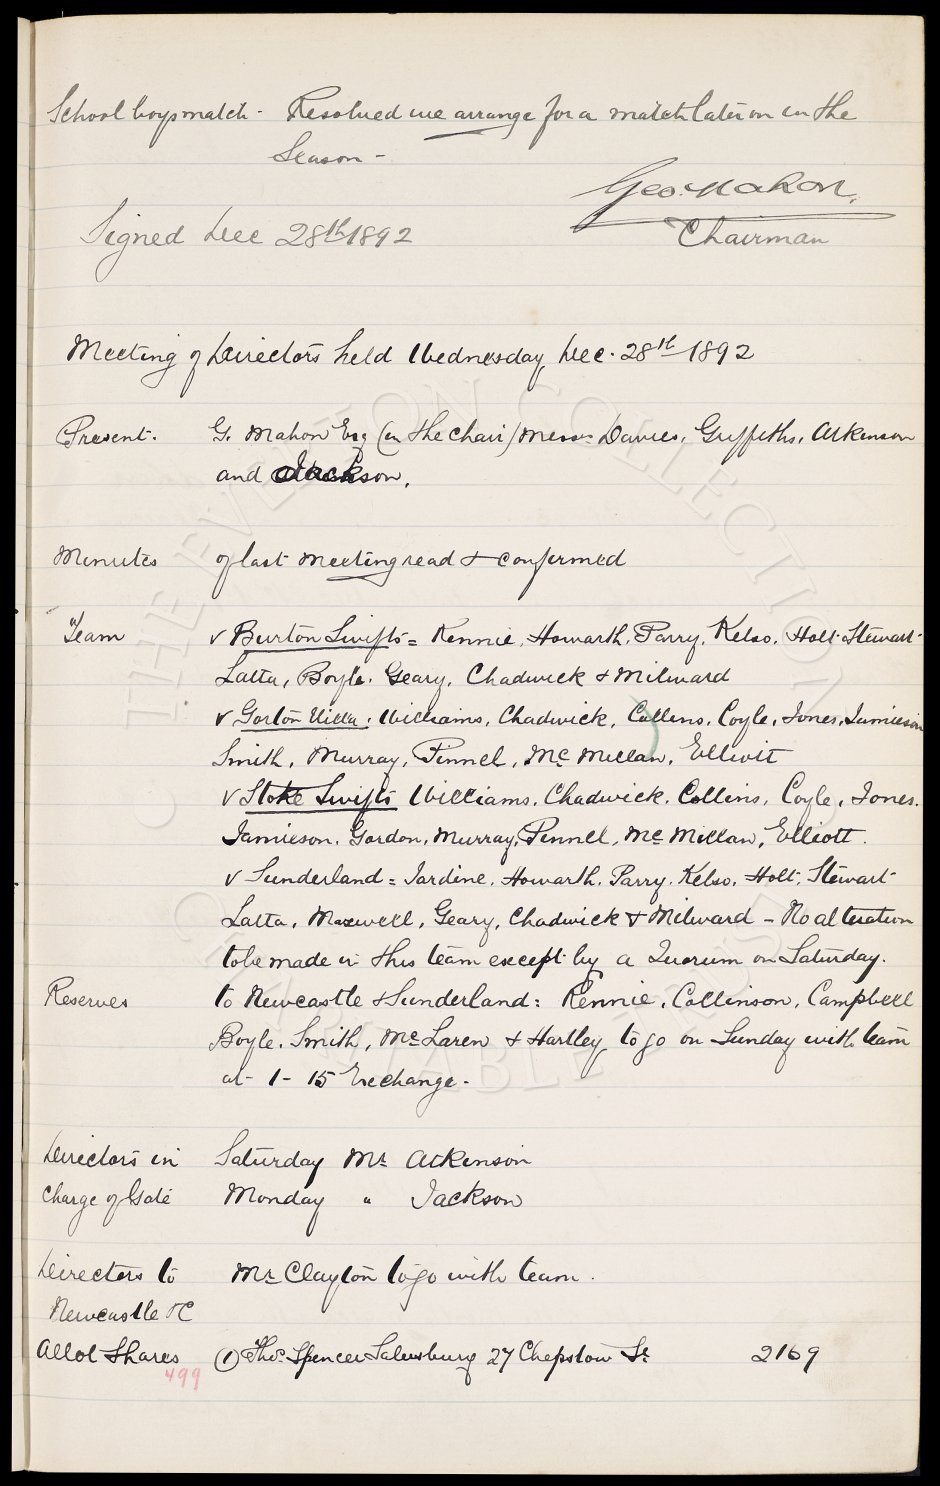 School boys match - Resolved we arrange for a match later on in the
Season -
Geo. Mahon.
Signed Dec 28th 1892
Chairman
Meeting of Directors held Wednesday Dec. 28th 1892
Present. G. Mahon Esq (in the chair) Messrs Davies, Griffiths, Atkinson
and Jackson.
Minutes of last meeting read & confirmed
Team v Burton Swifts = Rennie, Howarth, Parry, Kelso, Holt, Stewart
Latta, Boyle, Geary, Chadwick & Milward
v Gorton Villa. Williams, Chadwick, Collins, Coyle, Jones, Jamieson
Smith, Murray, Pinnel, McMillan, Elliott
v Stoke Swifts Williams, Chadwick, Collins, Coyle, Jones.
Jamieson, Gordon, Murray, Pinnell, McMillan, Elliott.
v Sunderland = Jardine, Howarth, Parry, Kelso, Holt, Stewart
Latta, Maxwell, Geary, Chadwick & Milward - No alteration
to be made in this team except by a Quorum on Saturday.
Reserves to Newcastle & Sunderland: Rennie, Collinson, Campbell
Boyle, Smith, McLaren & Hartley to go on Sunday with team
at 1-15 Exchange.
Directors in Saturday Mr Atkinson
charge of Gate Monday " Jackson
Directors to Mr Clayton to go with team.
Newcastle &C
Allot Shares (1) Thos. Spencer Salusbury 27 Chepstow St 2169
499
THE EVERTON COLLECTION
CHARITABLE TRUST